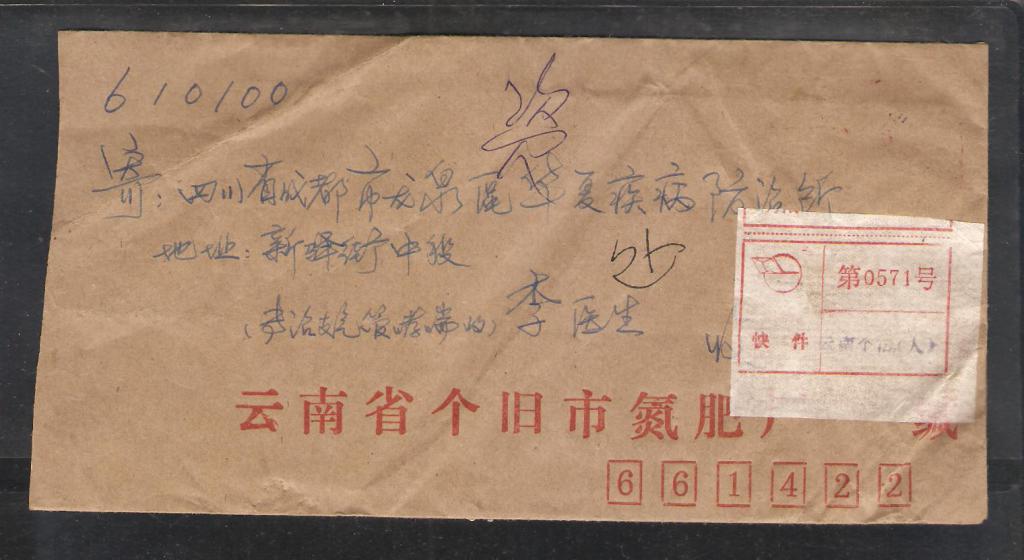 610100
寄:四川省成都市龙泉区华夏疾病防治所
地址:新驿街中段
(专治支气管哮喘的)李医生
收
第0571号
快件 云南个旧(人)
云南省个旧市氮肥厂 缄
661422